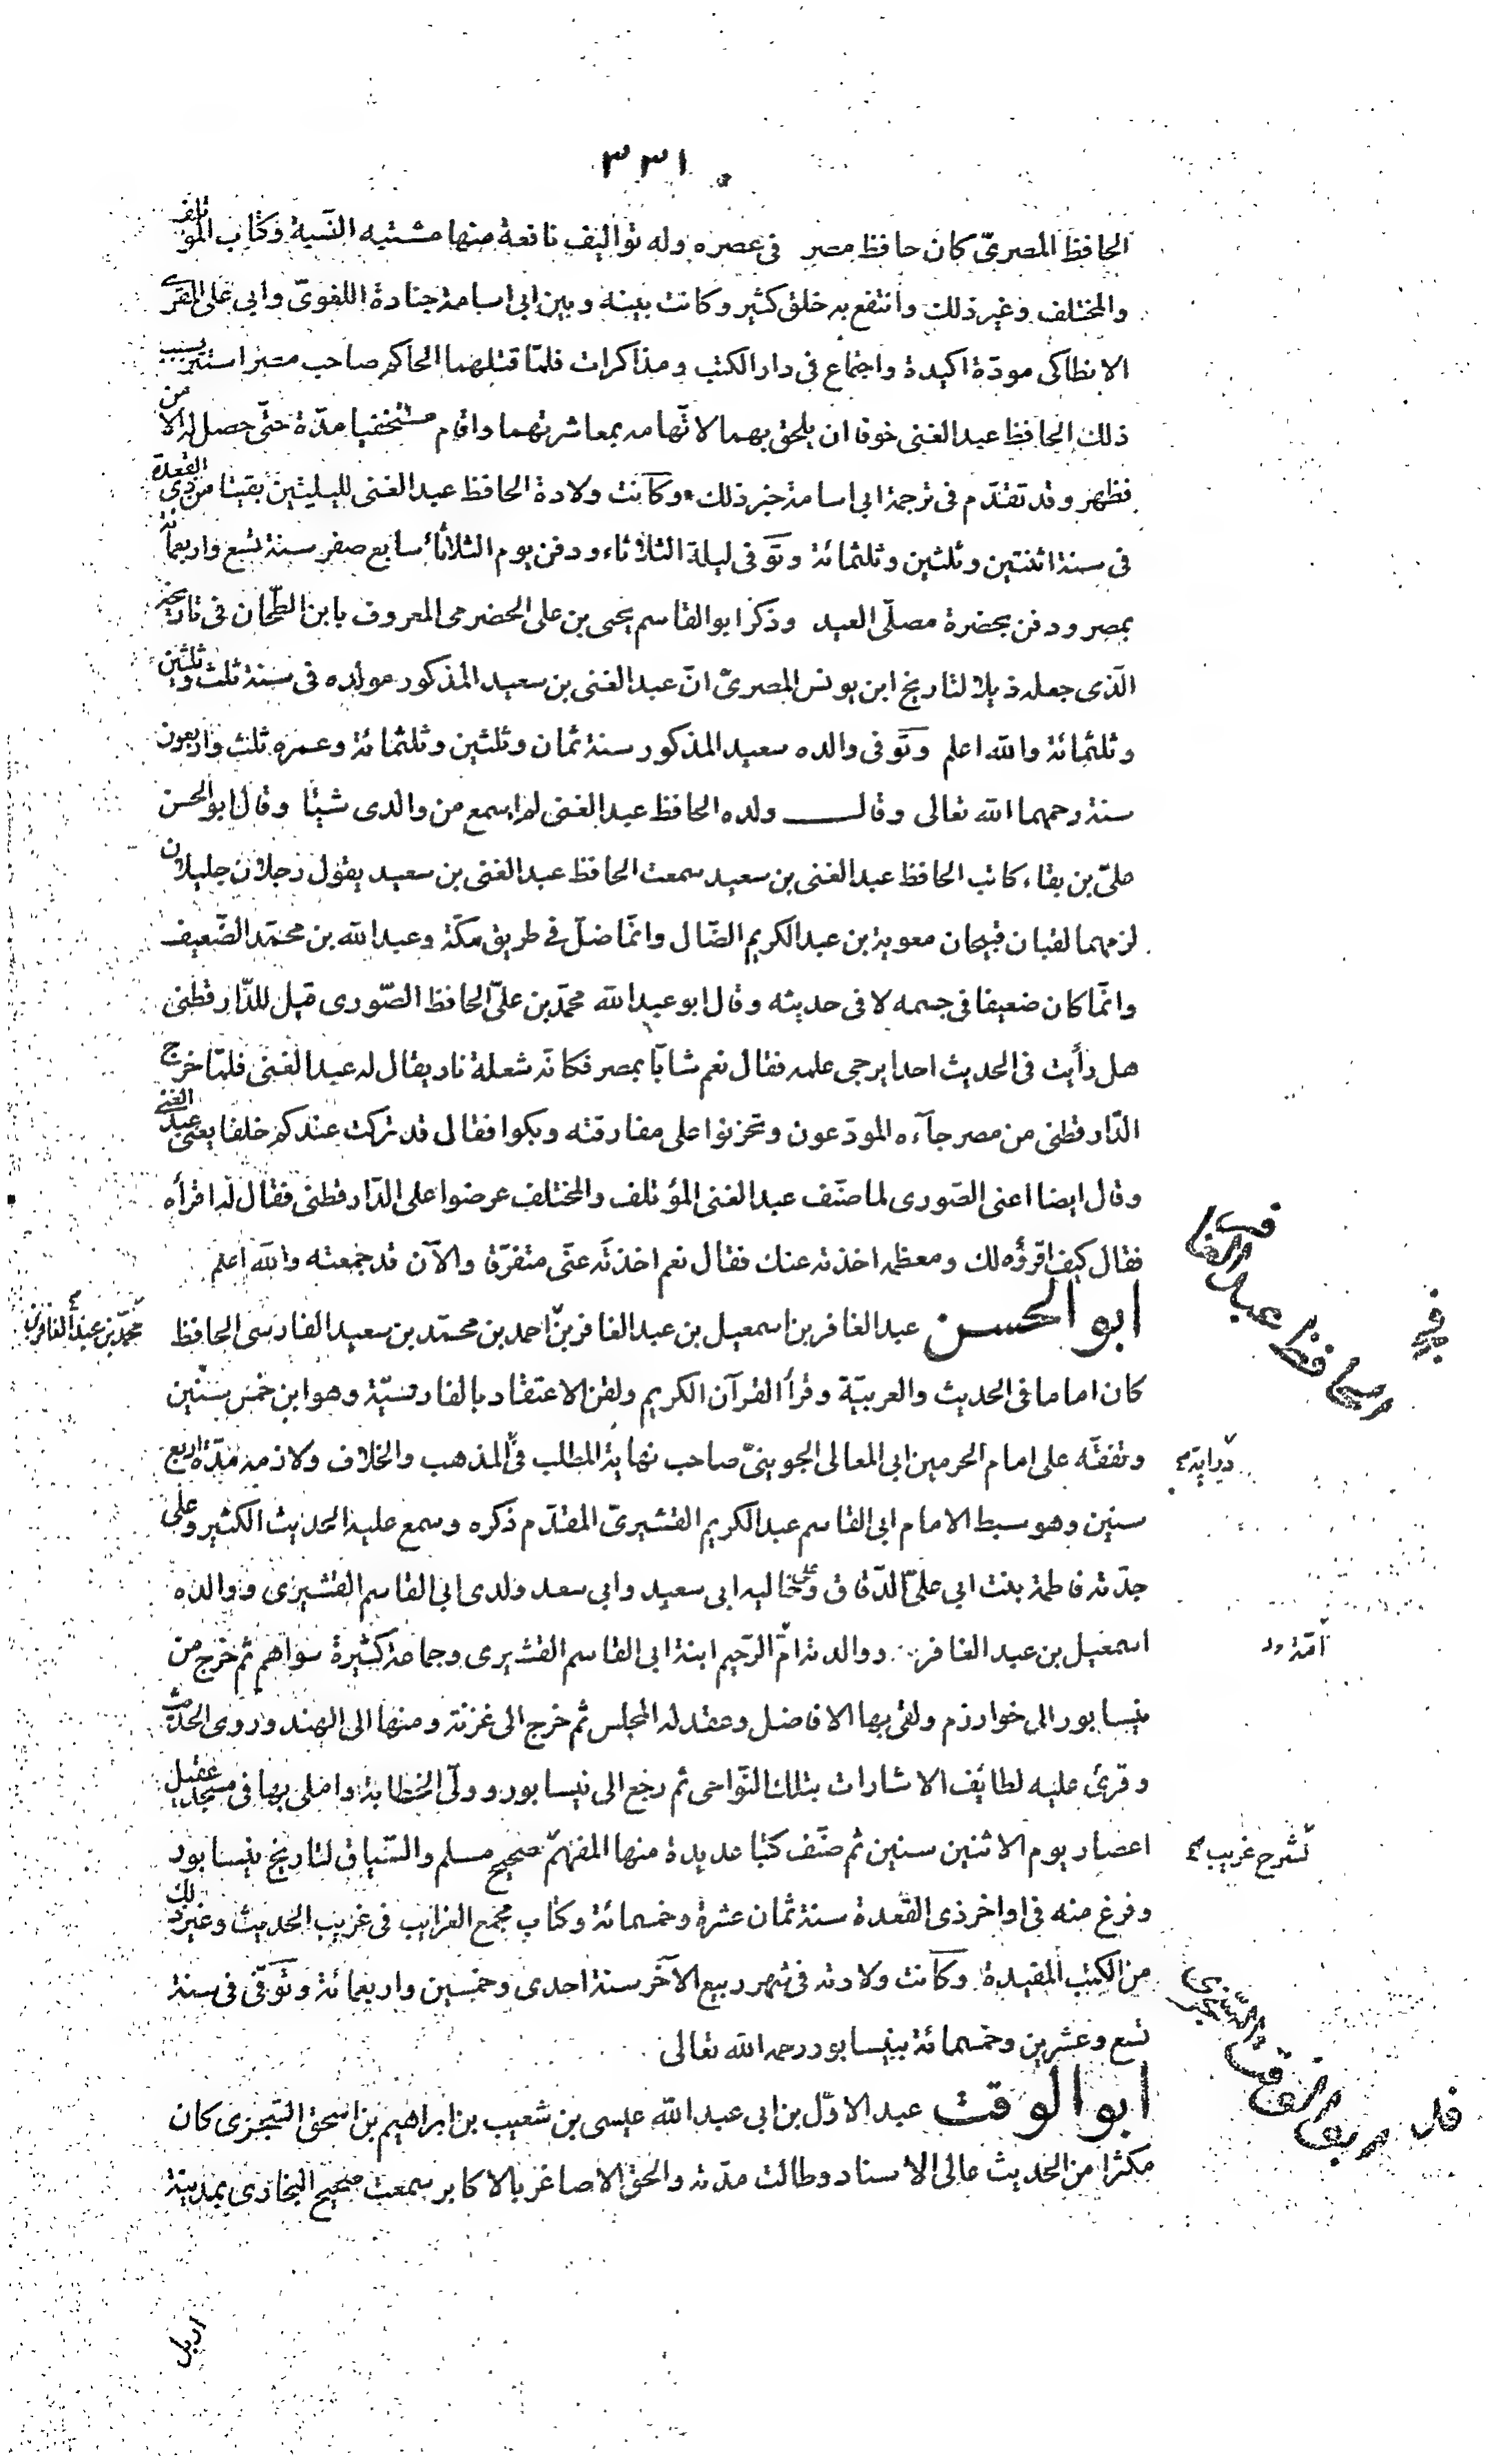 ٣٣١
الحافظ المصرىّ كان حافظ مصر فى عصره وله تواليف نافعة منها مشتبه النسبة وكتاب المؤتلف
والمختلف وغير ذلك وانتفع به خلق كثير وكانت بينه وبين ابى اسامة جنادة اللغوىّ وابى على المقرى
الانطاكى مودّة اكيدة واجتماع فى دار الكتب ومذاكرات فلمّا قتلهما الحاكم صاحب مصر استتر بسبب
ذلك الحافظ عبد الغنى خوفا ان يلحق بهما لاتّهامه بمعاشرتهما واقام مستخفيا مدّة حتّى حصل له الامن
فظهر وقد تقدّم فى ترجمة ابى اسامة خبر ذلك وكانت ولادة الحافظ عبد الغنى لليلتين بقيتا من ذى القعدة
فى سنة اثنتين وثلثين وثلثمائة وتوفى ليلة الثلاثاء ودفن يوم الثلاثاء سابع صفر سنة تسع واربعمائة
بمصر ودفن بحضرة مصلّى العيد وذكر ابو القاسم يحيى بن على الحضرمى المعروف بابن الطحّان فى تاريخه
الّذى جعله ذيلا لتاريخ ابن يونس المصرىّ انّ عبد الغنى بن سعيد المذكور مولده فى سنة ثلث وثلثين
وثلثمائة والله اعلم وتوفى والده سعيد المذكور سنة ثمان وثلثين وثلثمائة وعمره ثلث واربعون
سنة رحمهما الله تعالى وقال ولده الحافظ عبد الغنى لم اسمع من والدى شيئا وقال ابو الحسن
علىّ بن بقاء كاتب الحافظ عبد الغنى بن سعيد سمعت الحافظ عبد الغنى بن سعيد يقول رجلان جليلان
لزمهما لقبان قبيحان معوية بن عبد الكريم الضّال وانّما ضلّ فى طريق مكّة وعبد الله بن محمّد الضّعيف
وانّما كان ضعيفا فى جسمه لا فى حديثه وقال ابو عبد الله محمّد بن علىّ الحافظ الصّورى قيل للدّارقطنى
هل رأيت فى الحديث احدا يرجى علمه فقال نعم شابّا بمصر فكانّه شعلة نار يقال له عبد الغنى فلمّا خرج
الدّارقطنى من مصر جآءه المودّعون وتحزنوا على مفارقته وبكوا فقال قد تركت عندكم خلفا يعنى عبد الغنى
وقال ايضا اعنى الصّورى لما صنّف عبد الغنى المؤتلف والمختلف عرضوا على الدّارقطنى فقال له اقرأه
فقال كيف اقرؤه لك ومعظمه اخذته عنك فقال نعم اخذته عنّى متفرّقا والآن قد جمعته والله اعلم
الحافظ عبد الغافر
ابو الحسن عبد الغافر بن اسمعيل بن عبد الغافر بن احمد بن محمّد بن سعيد الفارسى الحافظ
محمّد بن عبد الغافر بن
كان اماما فى الحديث والعربيّة وقرأ القرآن الكريم ولقن الاعتقاد بالفارسيّة وهو ابن خمس سنين
وتفقّه على امام الحرمين ابى المعالى الجوينىّ صاحب نهاية المطلب فى المذهب والخلاف ولازمه مدّة اربع
دراية
سنين وهو سبط الامام ابى القاسم عبد الكريم القشيرىّ المقدّم ذكره وسمع عليه الحديث الكثير وعلى
جدّته فاطمة بنت ابى علىّ الدّقاق وعلى خاليه ابى سعيد وابى سعد ولدى ابى القاسم القشيرى ووالده
اسمعيل بن عبد الغافر ووالدته امّ الرّحيم ابنة ابى القاسم القشيرى وجماعة كثيرة سواهم ثم خرج من
نيسابور الى خوارزم ولقى بها الافاضل وعقد له المجلس ثم خرج الى غزنة ومنها الى الهند وروى الحديث
وقرئ عليه لطائف الاشارات بتلك النّواحى ثم رجع الى نيسابور وولّى الخطابة واملى بها فى مسجد عقيل
اعصار يوم الاثنين سنين ثم صنّف كتبا عديدة منها المفهم صحيح مسلم والسّياق لتاريخ نيسابور
لشرح غريب
وفرغ منه فى اواخر ذى القعدة سنة ثمان عشرة وخمسمائة وكتاب مجمع الغرايب فى غريب الحديث وغير ذلك
من الكتب المفيدة وكانت ولادته فى شهر ربيع الآخر سنة احدى وخمسين واربعمائة وتوفّى فى سنة
تسع وعشرين وخمسمائة بنيسابور رحمه الله تعالى
ابو الوقت عبد الاوّل بن ابى عبد الله عيسى بن شعيب بن ابراهيم بن اسحق السّجزى كان
ابو الوقت السّجزى
مكثرا من الحديث عالى الاسناد وطالت مدّته والحق الاصاغر بالاكابر سمعت صحيح البخارى بمدينة
اربل